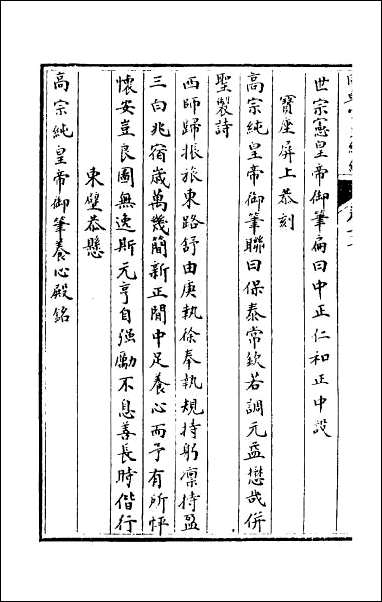 世宗憲皇帝御筆扁曰中正仁和正中設
寶座屏上恭刻
高宗純皇帝御筆聯曰保泰常欽若調元益懋哉併
聖製詩
西師歸振旅東路舒由庚執徐奉執規持躬凜持盈
三白兆宿歲萬幾簡新正閒中足養心而予有所怦
懷安豈良圖無逸斯元亨自强勵不息善長時偕行
東壁恭懸
高宗純皇帝御筆養心殿銘